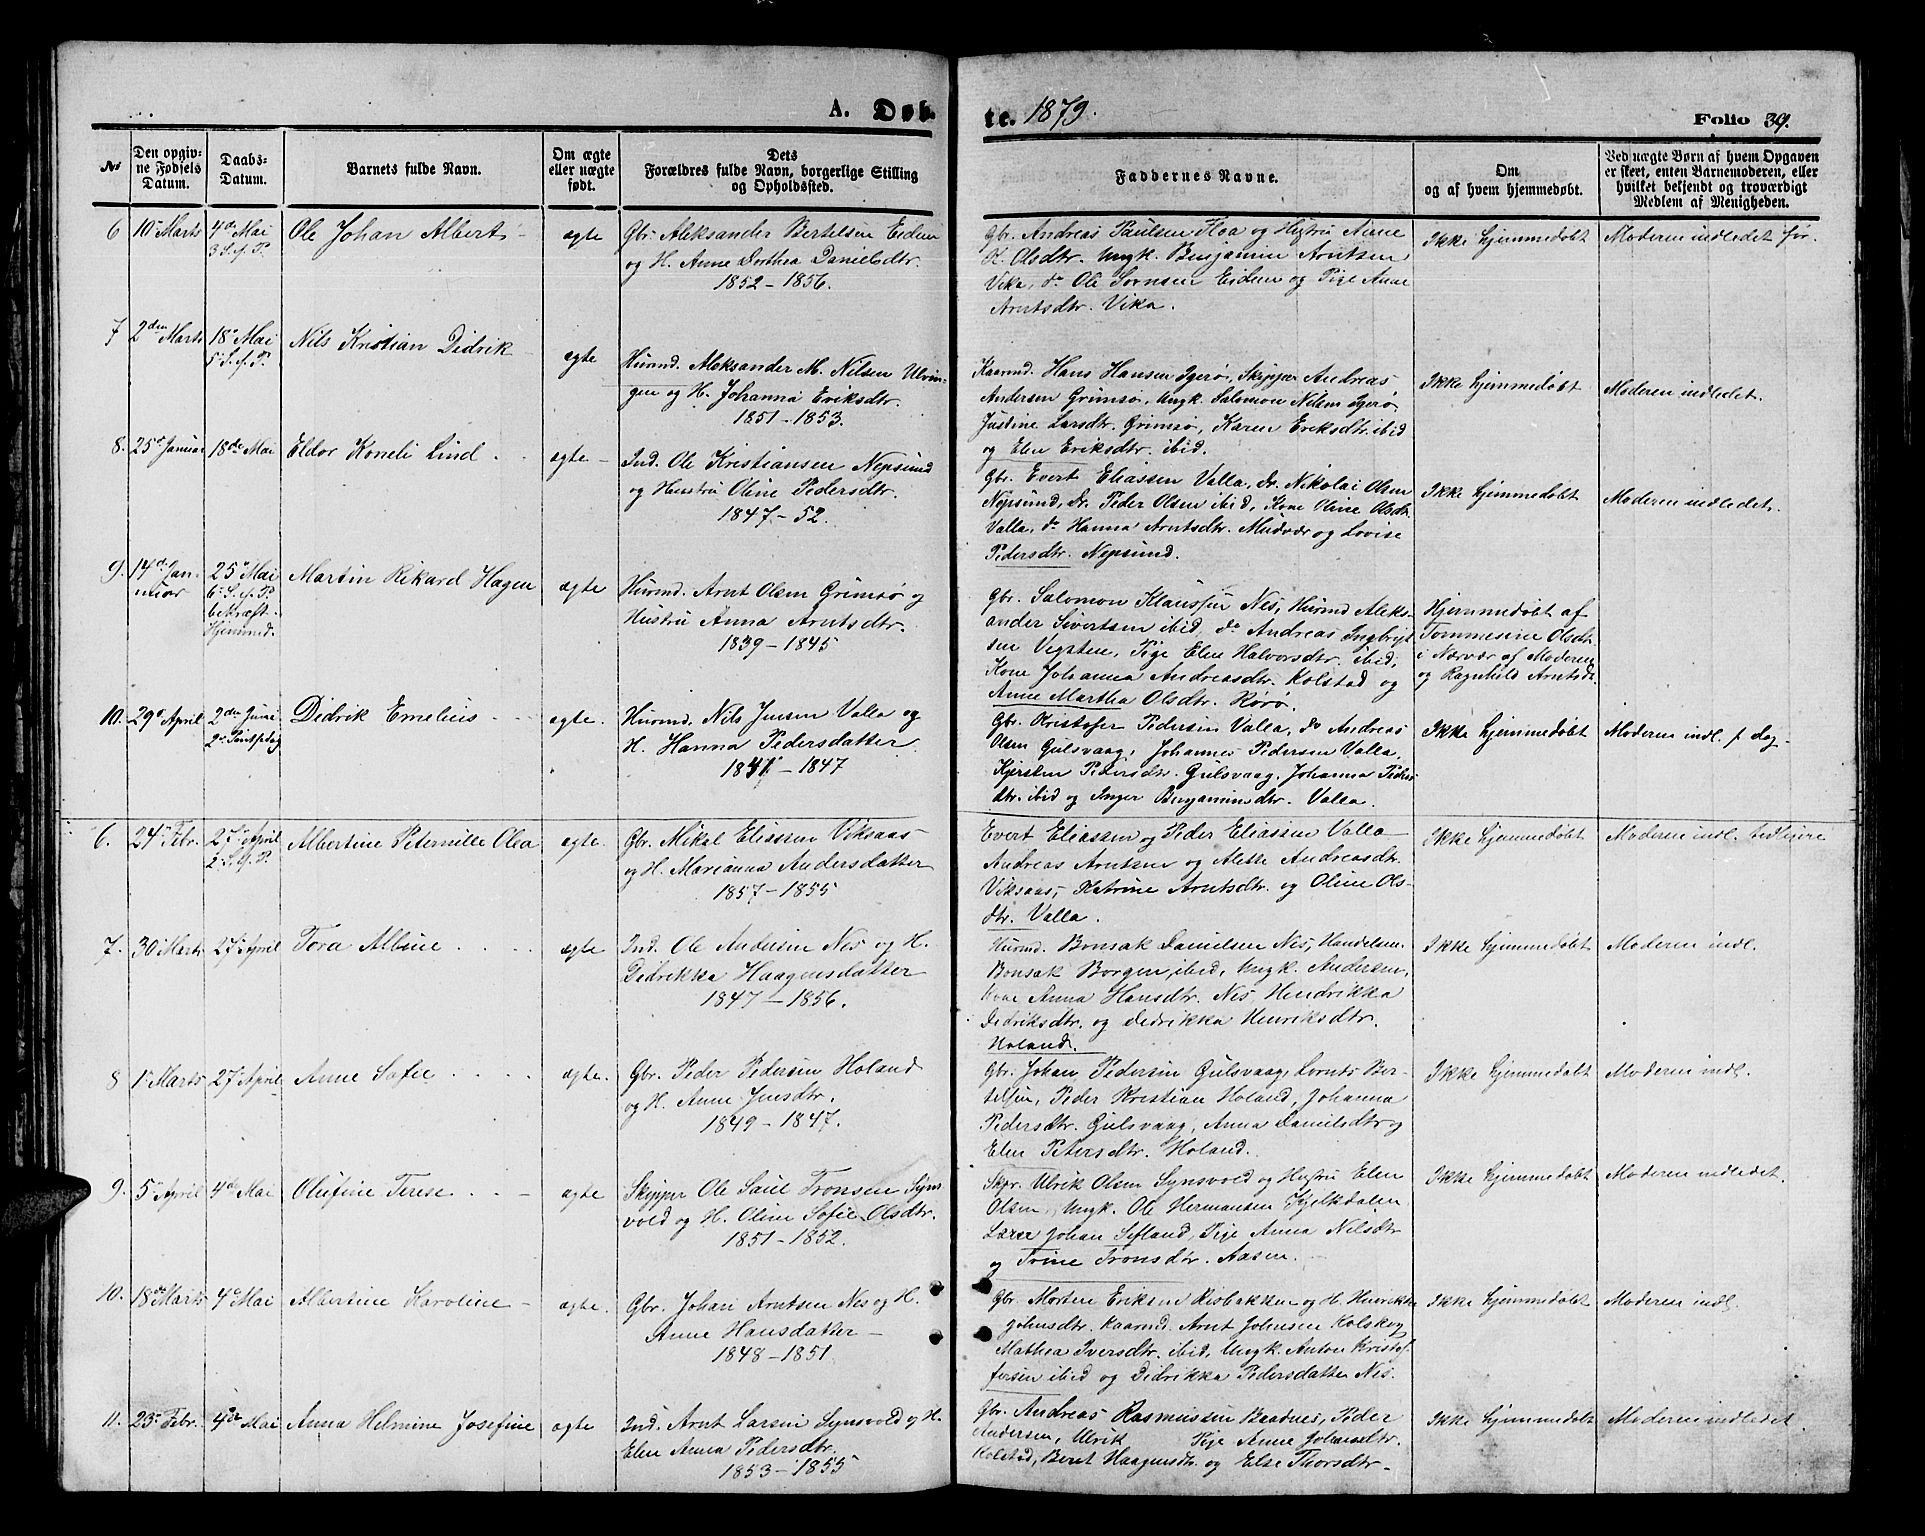 A. Døb-
te. 1879.
Folio 39.
No
Den opgiv-
ne Fødsels
Datum.
Daabs-
Datum.
Barnets fulde Navn.
Om ægte
eller uægte
født.
Dets
Forældres fulde Navn, borgerlige Stilling
og Opholdssted.
Faddernes Navne.
Om
og af hvem hjemmedøbt.
Ved uægte Børn af hvem Opgaven
er skeet, enten Barnemoderen, eller
hvilket bekjendt og troværdigt
Medlem af Menigheden.
6 10 Marts 4de Mai
3 S. ef. P.
Ole Johan Albert
ægte
Gbr. Aleksander Bertelsen Eidem
og H. Anne Dorthea Danielsdtr.
1852 - 1856.
Gbr. Andreas Paulsen Floa og Hustru Anne
O. Olsdtr. Ungk. Benjamin Arntsen
Vika, do Ole Sørnsen Eidem og Pige Anne
Arntsdtr. Vika.
Ikke hjemmedøbt
Moderen indledet før.
7 2den Marts 18 Mai
5 S. ef. P.
Nils Kristian Didrik
ægte
Husmd. Aleksander M. Nilsen Ulvin-
gen og H. Johanna Eriksdtr.
1851 - 1853.
Kaarmd. Hans Hansen Igerø, Skipper Andreas
Andersen Grimsø, Ungk. Salomon Nilsen Igerø
Justine Larsdtr. Grimsø, Karen Eriksdtr. ibid
og Elen Eriksdtr. ibid.
Ikke hjemmedøbt
Moderen indledet.
8. 25 Januar 18de Mai
Eldor Koneli Lind
ægte
Ind. Ole Kristiansen Nepsund
og Hustru Oline Pedersdtr.
1847 - 52.
Gbr. Evert Eliassen Valla, do. Nikolai Olsen
Nepsund, do. Peder Olsen ibid, Kone Oline Olsdtr.
Valla, do Hanna Arntsdtr. Mudvær og Lovise
Pedersdtr. Nepsund.
Ikke hjemmedøbt
Moderen indledet.
9. 14de Jan-
uar
25 Mai
6 S. ef. P.
bekræft.
Hjemmed.
Martin Rikard Hagen
ægte
Husmd. Arnt Olsen Grimsø og
Hustru Anna Arntsdtr.
1839 - 1845
Gbr. Salomon Klaussen Nes, Husmd Aleks-
ander Sivertsen ibid, do Andreas Ingbrigt-
sen Vegsten, Pige Elen Halvorsdtr. ibid,
Kone Johanna Andreasdtr. Kolstad og
Anne Martha Olsdtr. Rørø.
Hjemmedøbt af
Tommesine Olsdt.
i Nærvær af Moderen
og Ragnhild Arntsd.
10. 29 April 2den Juni
2. Pintsedag
Didrik Emelius
ægte.
Husmd. Nils Jensen Valla og
H. Hanna Pedersdatter
1841 - 1847
Gbr. Kristofer Pedersen Valla, do Andreas
Olsen Gulsvaag, Johannes Pedersen Valla,
Kjersten Pedersdtr. Gulsvaag, Johanna Peders-
dtr. ibid og Inger Benjaminsdtr. Valla.
Ikke hjemmedøbt
Moderen indl. s dag.
6. 24 Febr. 27 April
2. S. ef. P.
Albertine Peternille Olea
ægte.
Gbr. Mikal Eliassen Viksaas
og H. Marianna Andersdatter
1857 - 1855
Evert Eliassen og Peder Eliassen Valla
Andreas Arntsen og Alette Andreasdtr.
Viksaas, Katrine Arntsdtr. og Oline Ols-
dtr. Valla.
Ikke hjemmedøbt
Moderen indl. tidligere
7. 30 Marts 27 April
Tora Albine
ægte
Ind. Ole Andersen Nes og H.
Didrikka Haagensdatter
1847 - 1856.
Husmd. Bonsak Danielsen Nes, Handelsm.
Bonsak Borgen, ibid, Ungk. Andersen,
Kone Anna Hansdtr. Nes, Hendrikka
Didriksdtr. og Didrikka Henriksdtr.
Holand.
Ikke hjemmedøbt
Moderen indl.
8 1 Marts 27 April
Anne Sofie
ægte.
Gbr. Peder Pedersen Holand
og H. Anne Jensdtr.
1849 - 1847.
Gbr. Johan Pedersen Gulsvaag, Lornts Ber-
telsen, Peder Kristian Holand, Johanna
Pedersdtr. Gulsvaag, Anna Danielsdtr og
Elen Petersdtr. Holand.
Ikke hjemmedøbt
Moderen indl.
9. 5 April 4de Mai
Olufine Terese
ægte
Skipper Ole Saul Tronsen Syns-
vold og H. Oline Sofie Olsdtr.
1851 - 1852.
Skpr. Ulrik Olsen Synsvold og Hustru Elen
Olsen, Ungk. Ole Hermansen Kjelkdalen
Lærer Johan Sefland, Pige Anna Nilsdtr
og Trine Tronsdtr. Aasen.
Ikke hjemmedøbt
Moderen indledet.
10. 18de Marts 4 Mai
Albertine Karoline
ægte.
Gbr. Johan Arntsen Nes og H.
Anne Hansdatter
1848 - 1851.
Gbr. Morten Eriksen Risbakken og H. Henrikke
Johnsdtr. Kaarmd. Arnt Johnsen Kolskog
Mathea Iversdtr. ibid, Ungk. Anton Kristof-
fersen ibid og Didrikka Pedersdatter Nes.
Ikke hjemmedøbt
Moderen indl.
11. 23 Febr. 4de Mai
Anna Helmine Josefine
ægte
Ind. Arnt Larsen Synsvold og H.
Elen Anna Pedersdtr.
1853 - 1855
Gbr. Andreas Rasmussen Baadnes, Peder
Andersen, Ulrik Pige Anne Johansdtr.
Kolstad, Beret Haagensdtr og Else Thorsdtr.
Ikke hjemmedøbt
Moderen indledet